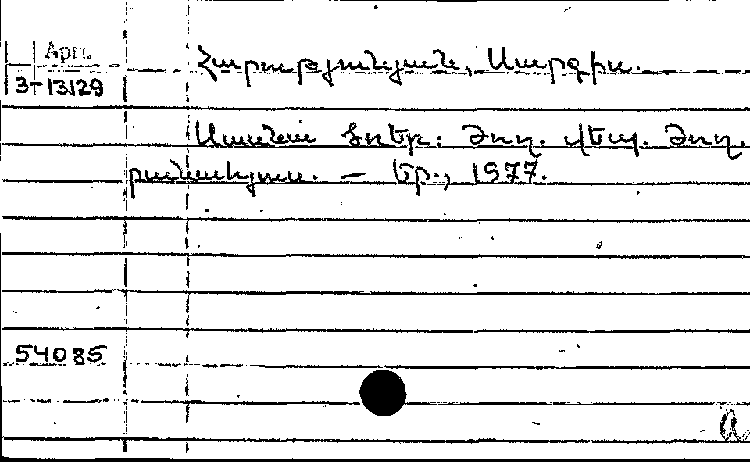 Арм.
3-13129
Հարությունյան, Սարգիս.
Սասնա ծռեր: Ժող. վեպ. Ժող.
բանահյուս. — Եր., 1977.
54085
а